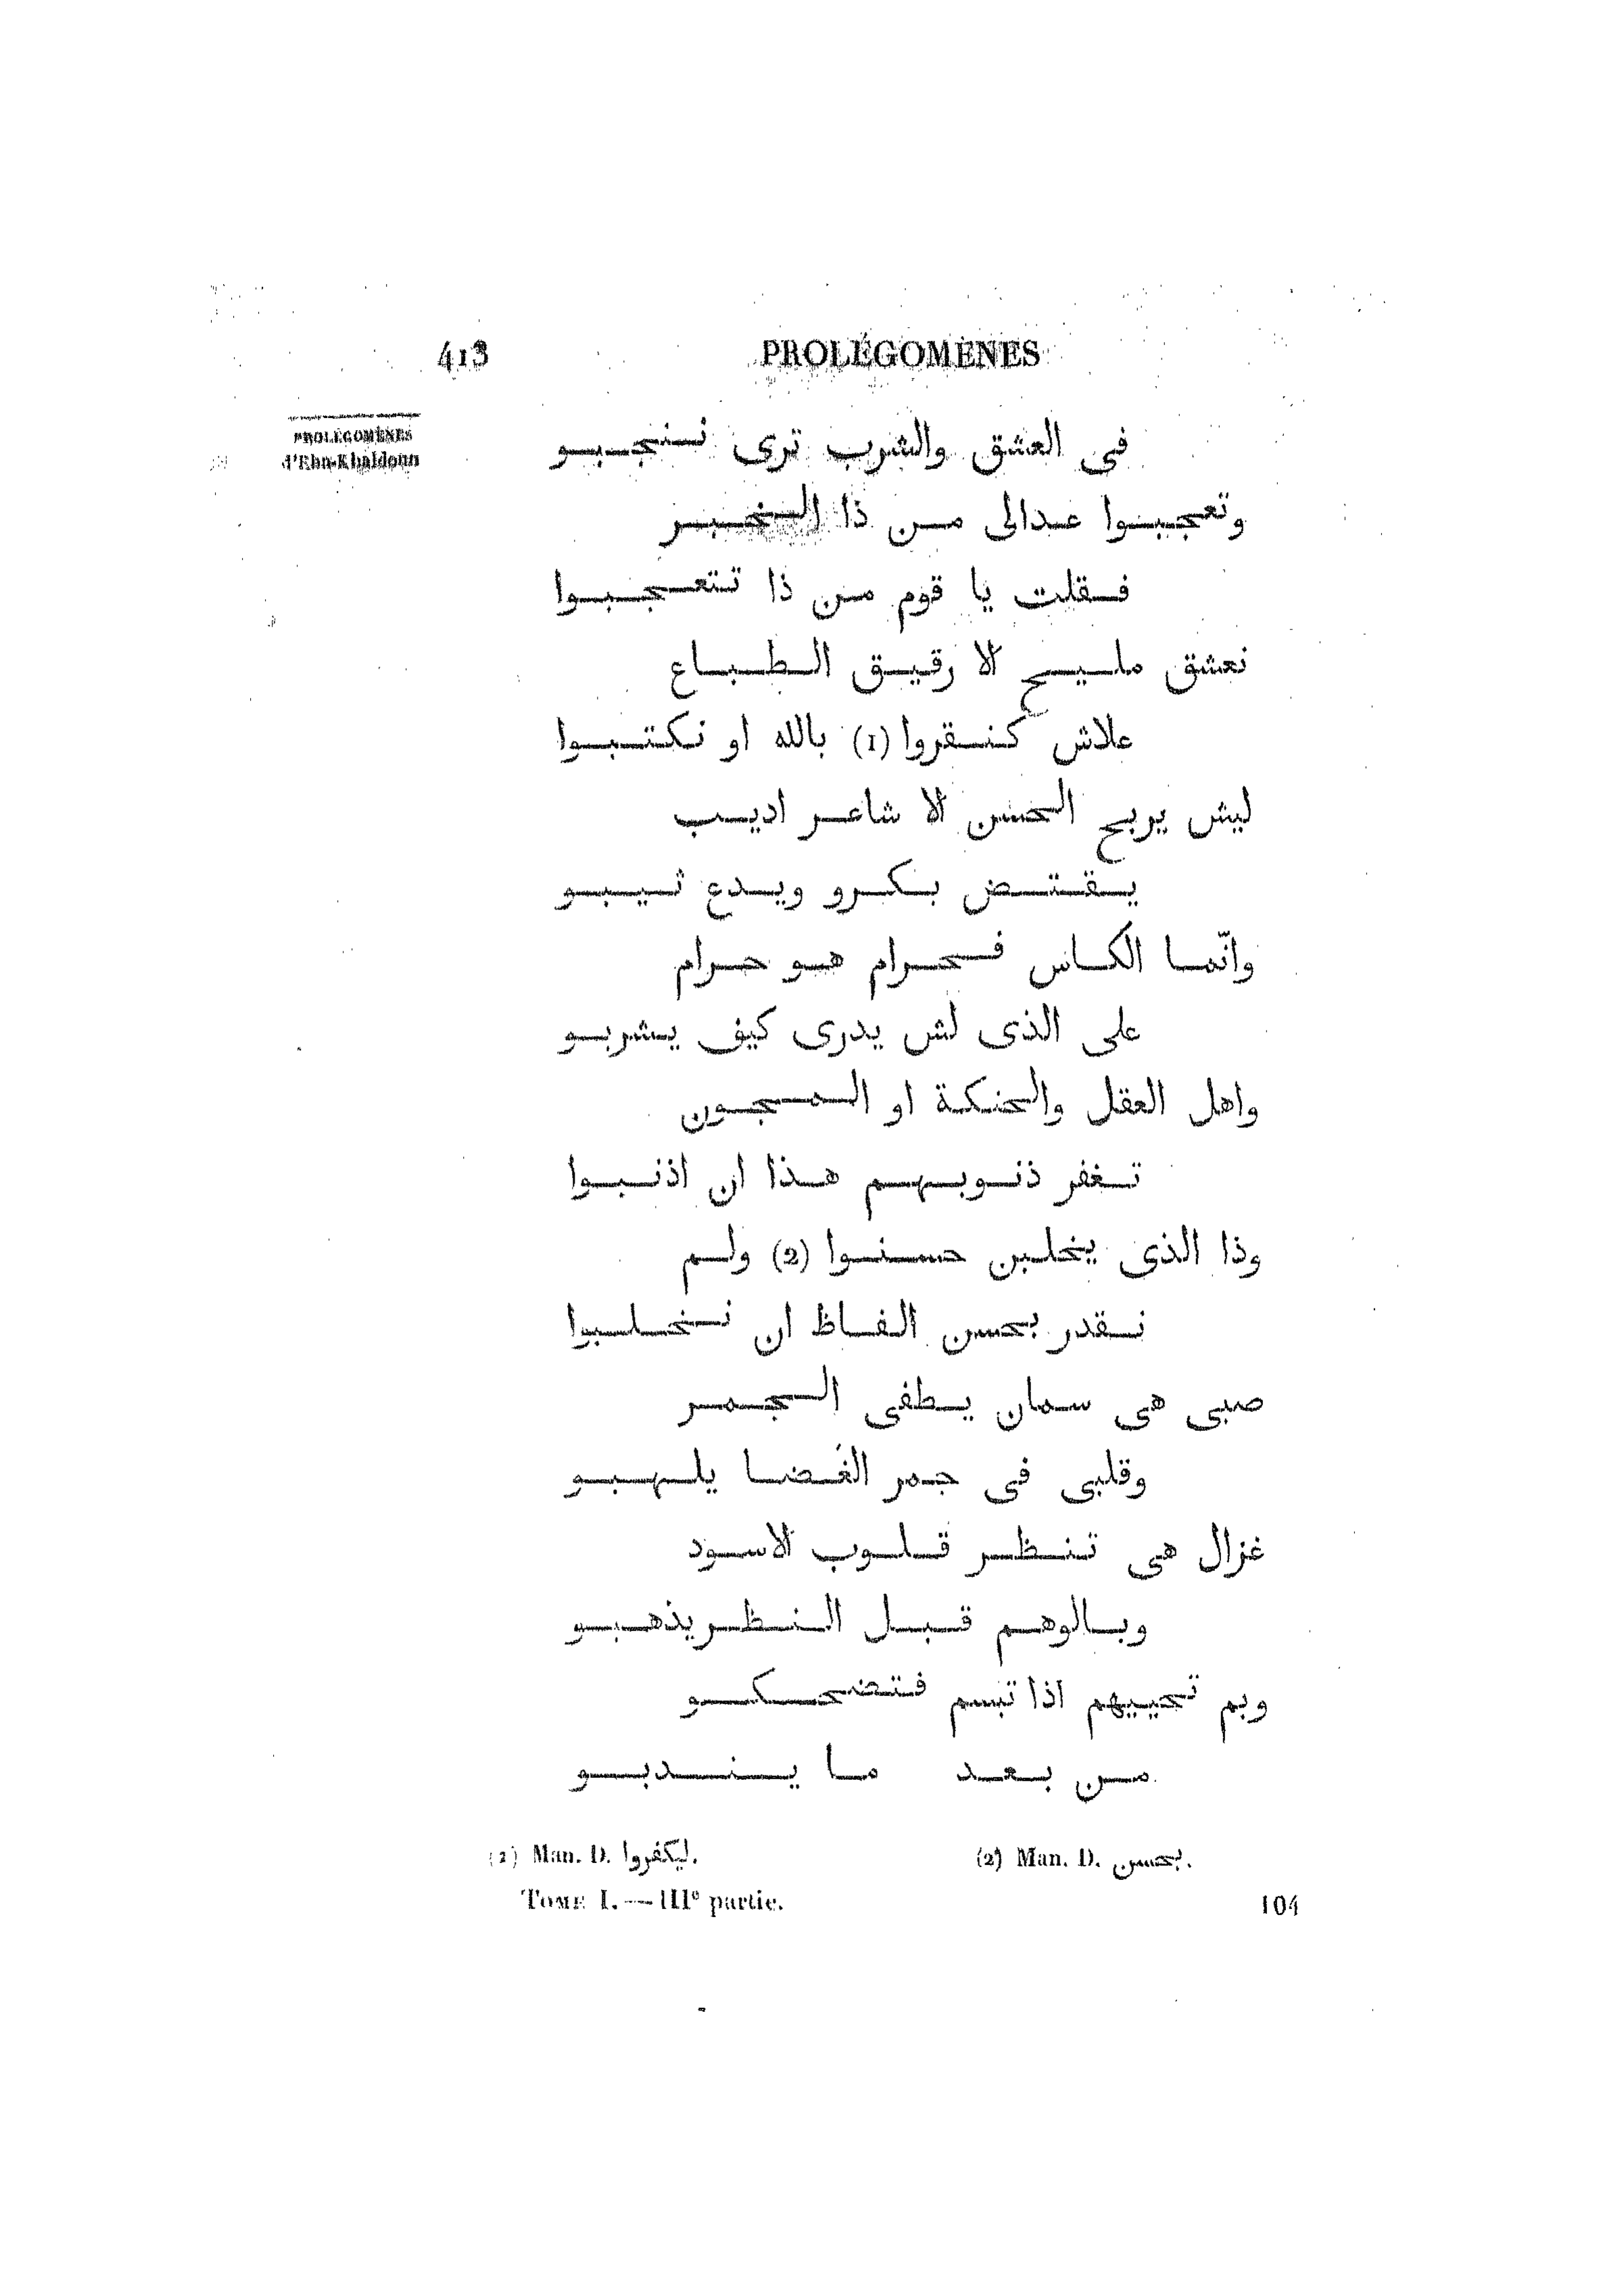 413 PROLÉGOMÈNES
PROLÉGOMÈNES
d'Ebn-Khaldoun
فى العشق والشرب ترى ننجبو
وتعجبوا عدالى من ذا الخبر
فقلت يا قوم من ذا تتعجبوا
نعشق مليح الا رقيق الطباع
علاش كنقروا (1) بالله او نكتبوا
ليش يربح الحسن الا شاعر اديب
يقتض بكرو ويدع ثيبو
وانّما الكاس فحرام هو حرام
على الذى لش يدرى كيف يشربو
واهل العقل والحنكة او المجون
تغفر ذنوبهم هذا ان اذنبوا
وذا الذى يخلبن حسنوا (2) ولم
نقدر بحسن الفاظ ان نخلبوا
صبى هى سمان يطفى الجمر
وقلبى فى جمر الغَضا يلهبو
غزال هى تنظر قلوب الاسود
وبالوهم قبل النظر يذهبو
وبم تحييهم اذا تبسم فتضحكو
من بعد ما يندبو
(1) Man. D. ليكفروا. (2) Man. D. بحسن.
TOME I. — IIIe partie. 104